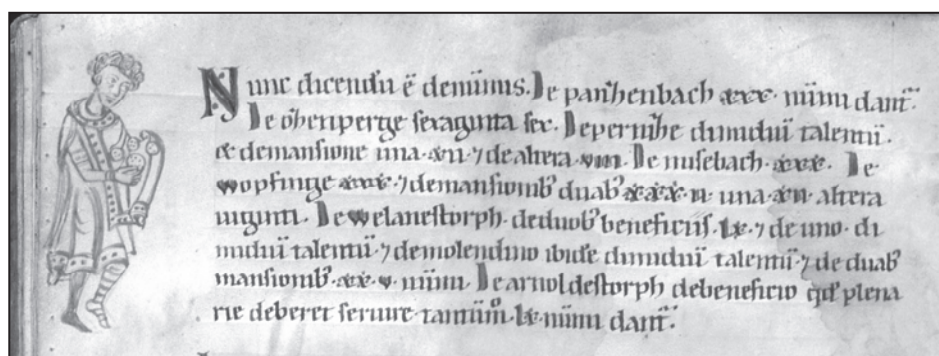 Nunc dicendū ē denūmis. De parh̄enbach xxx. nūmi dant̄.
De oh̄enperge sexaginta sex. De pernih̄e dimidiū talentū.
& de mansione una. xii. ⁊ de altera. viii. De nusebach. xxx. De
wopfinge xxx. ⁊ de mansionib; duab; xxx. ii. una. xii. altera
uiginti. De welanestorph. de duob; beneficiis. lx. ⁊ de uno. di
midiū talentū. ⁊ de molendino ibidē dimidiū talentū. ⁊ de duab;
mansionib; xx. v. nūm. De arnoldestorph de beneficio qd̄ plena
rie deberet seruire. tantūm. lx. nūmi dant̄.